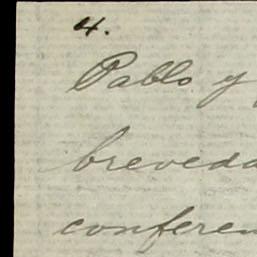 4.
Pablo y
breveda
conferen